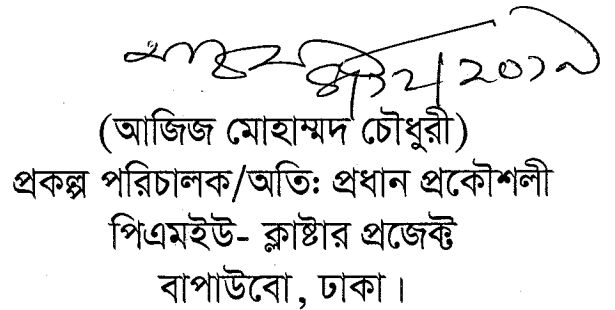 (আজিজ মোহাম্মদ চৌধুরী)
প্রকল্প পরিচালক/অতি: প্রধান প্রকৌশলী
পিএমইউ- ক্লাষ্টার প্রজেক্ট
বাপাউবো, ঢাকা।